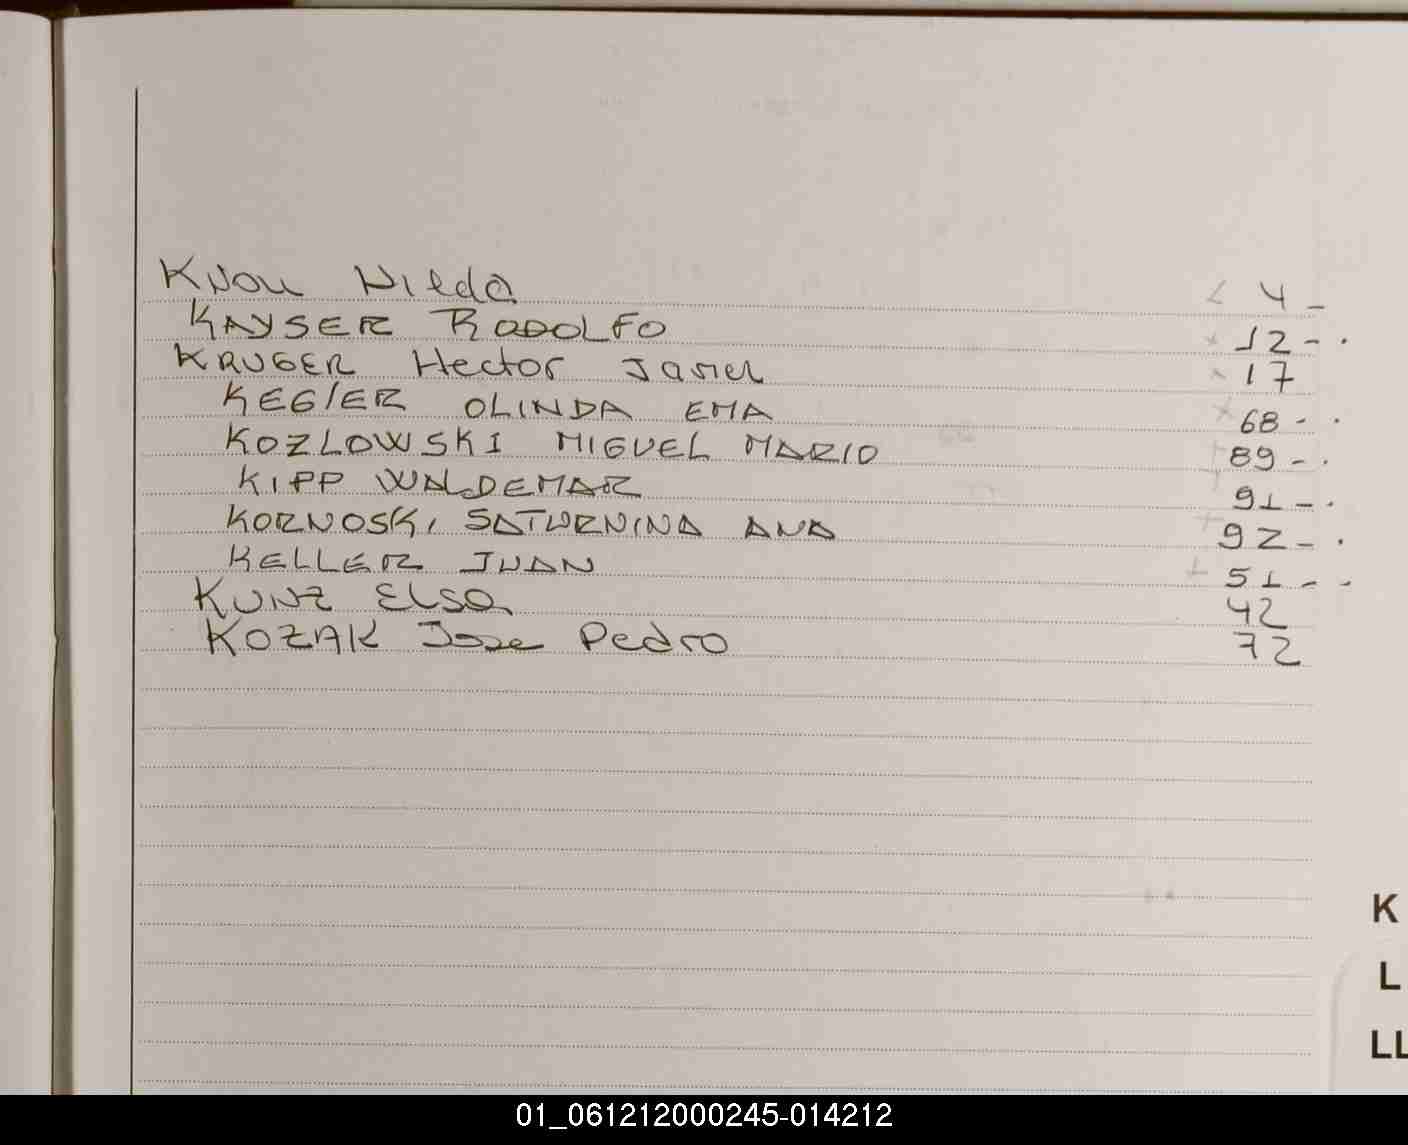 Knoll Nilda 4 -
KAYSER RODOLFO 12 - .
KRUGER Hector Javiel 17
KEGLER OLINDA EMA 68 - .
KOZLOWSKI MIGUEL MARIO 89 - .
KIPP WALDEMAR 91 - .
KORNOSKI SATURNINA ANA 92 - .
KELLER JUAN 51 - -
KUNZ Elsa 42
KOZAK Jose Pedro 72
K
L
LL
01_061212000245-014212